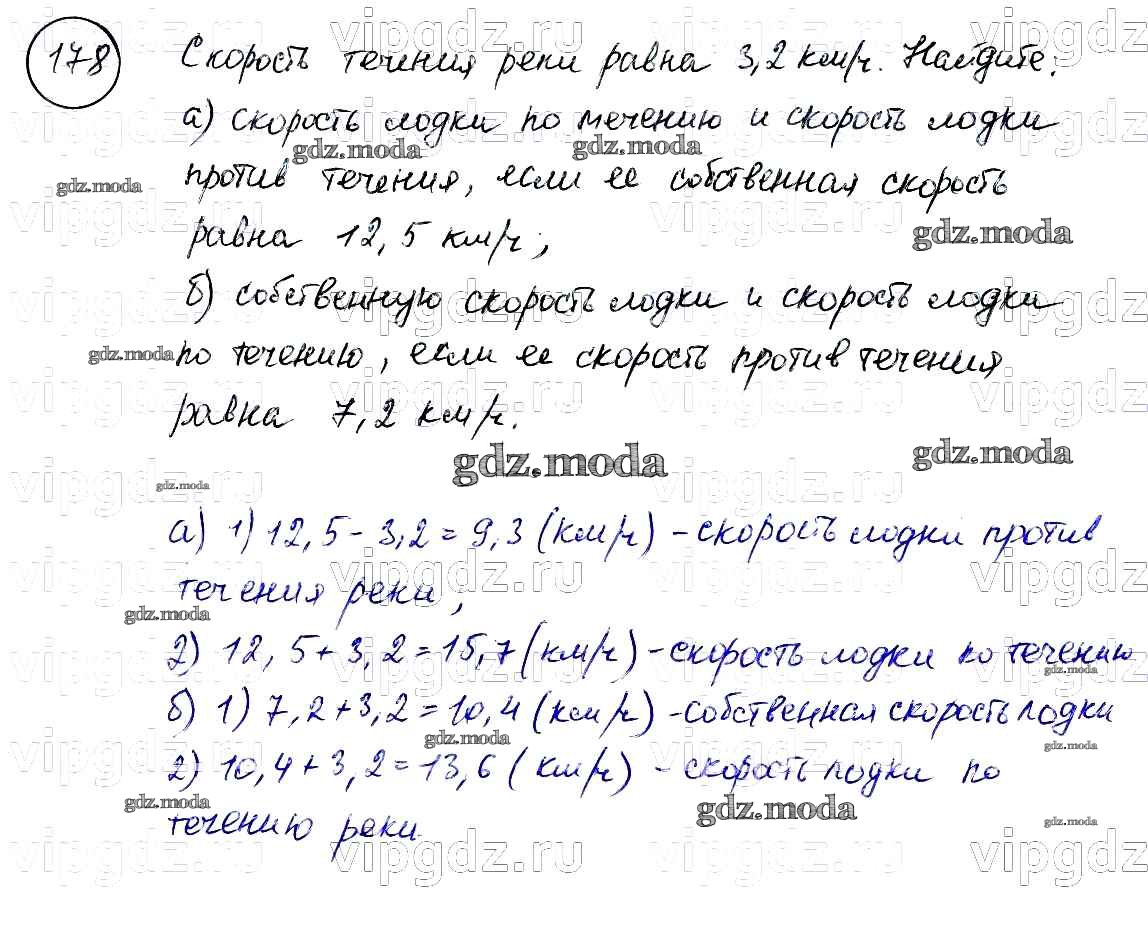 178
Скорость течения реки равна 3,2 км/ч. Найдите:
а) скорость лодки по течению и скорость лодки
против течения, если ее собственная скорость
равна 12,5 км/ч;
б) собственную скорость лодки и скорость лодки
по течению, если ее скорость против течения
равна 7,2 км/ч.
а) 1) 12,5 - 3,2 = 9,3 (км/ч) - скорость лодки против
течения реки;
2) 12,5 + 3,2 = 15,7 (км/ч) - скорость лодки по течению
б) 1) 7,2 + 3,2 = 10,4 (км/ч) - собственная скорость лодки
2) 10,4 + 3,2 = 13,6 (км/ч) - скорость лодки по
течению реки.
gdz.moda
vipgdz.ru